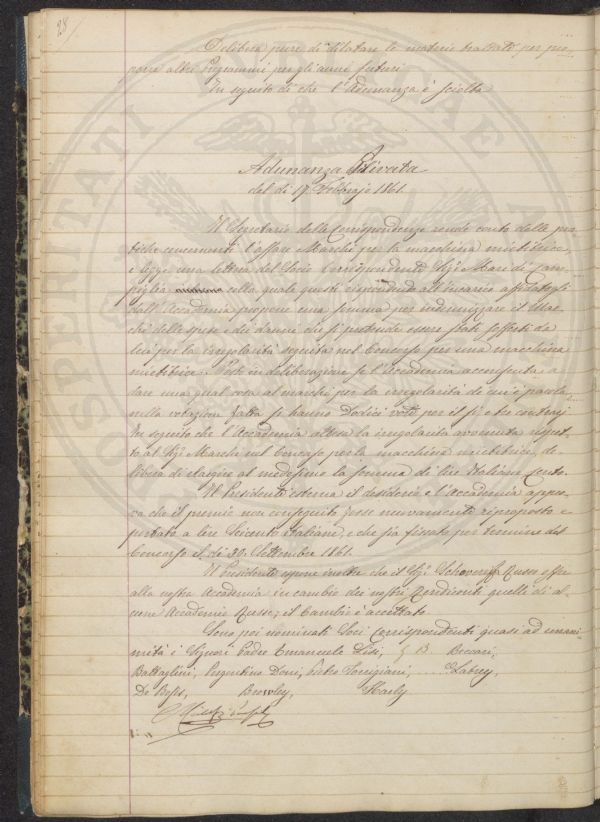 28
Delibera pure di dilatare le materie trattate per pro-
porre altri Programmi per gli anni futuri
In seguito di che l'Adunanza è sciolta
Adunanza Privata
del dì 17 Febbrajo 1861.
Il Segretario delle Corrispondenze rende conto delle pra-
tiche concernenti l'affare Marchi per la macchina mietitrice
e legge una lettera del Socio Corrispondente Sigr. Mare di Cam-
piglia colla quale questi rispondendo all'incarico affidatogli
dall'Accademia propone una somma per indennizzare il Mar-
chi delle spese e dei danni che si pretende essere stati sofferti da
lui per la irregolarità seguita nel Concorso per una macchina
mietitrice. Posto in deliberazione se l'Accademia acconsenta a
dare una qual cosa al Marchi per la irregolarità di cui è parola
nella votazione fatta si hanno Dodici voti per il sì, e tre contrarj
In seguito che l'Accademia attesa la irregolarità avvenuta rispet-
to al Sigr. Marchi nel Concorso per la macchina mietitrice, de-
libera di elargire al medesimo la somma di lire Italiane Cento.
Il Presidente esterna il desiderio e l'Accademia appro-
va che il premio non conseguito fosse nuovamente riproposto e
portato a lire Seicento Italiane, e che sia fissato per termine del
Concorso il dì 30. Settembre 1861.
Il Presidente espone inoltre che il Sigr. Russo offre
alla nostra Accademia in cambio dei nostri Rendiconti quelli di al-
cune Accademie Russe; il Cambio è accettato
Sono poi nominati Soci Corrispondenti quasi ad unani-
mità i Signori Padre Emanuele Lisi, G B. Beccari,
Battaglini, Doni, Pietro
De Rossi, Hauly